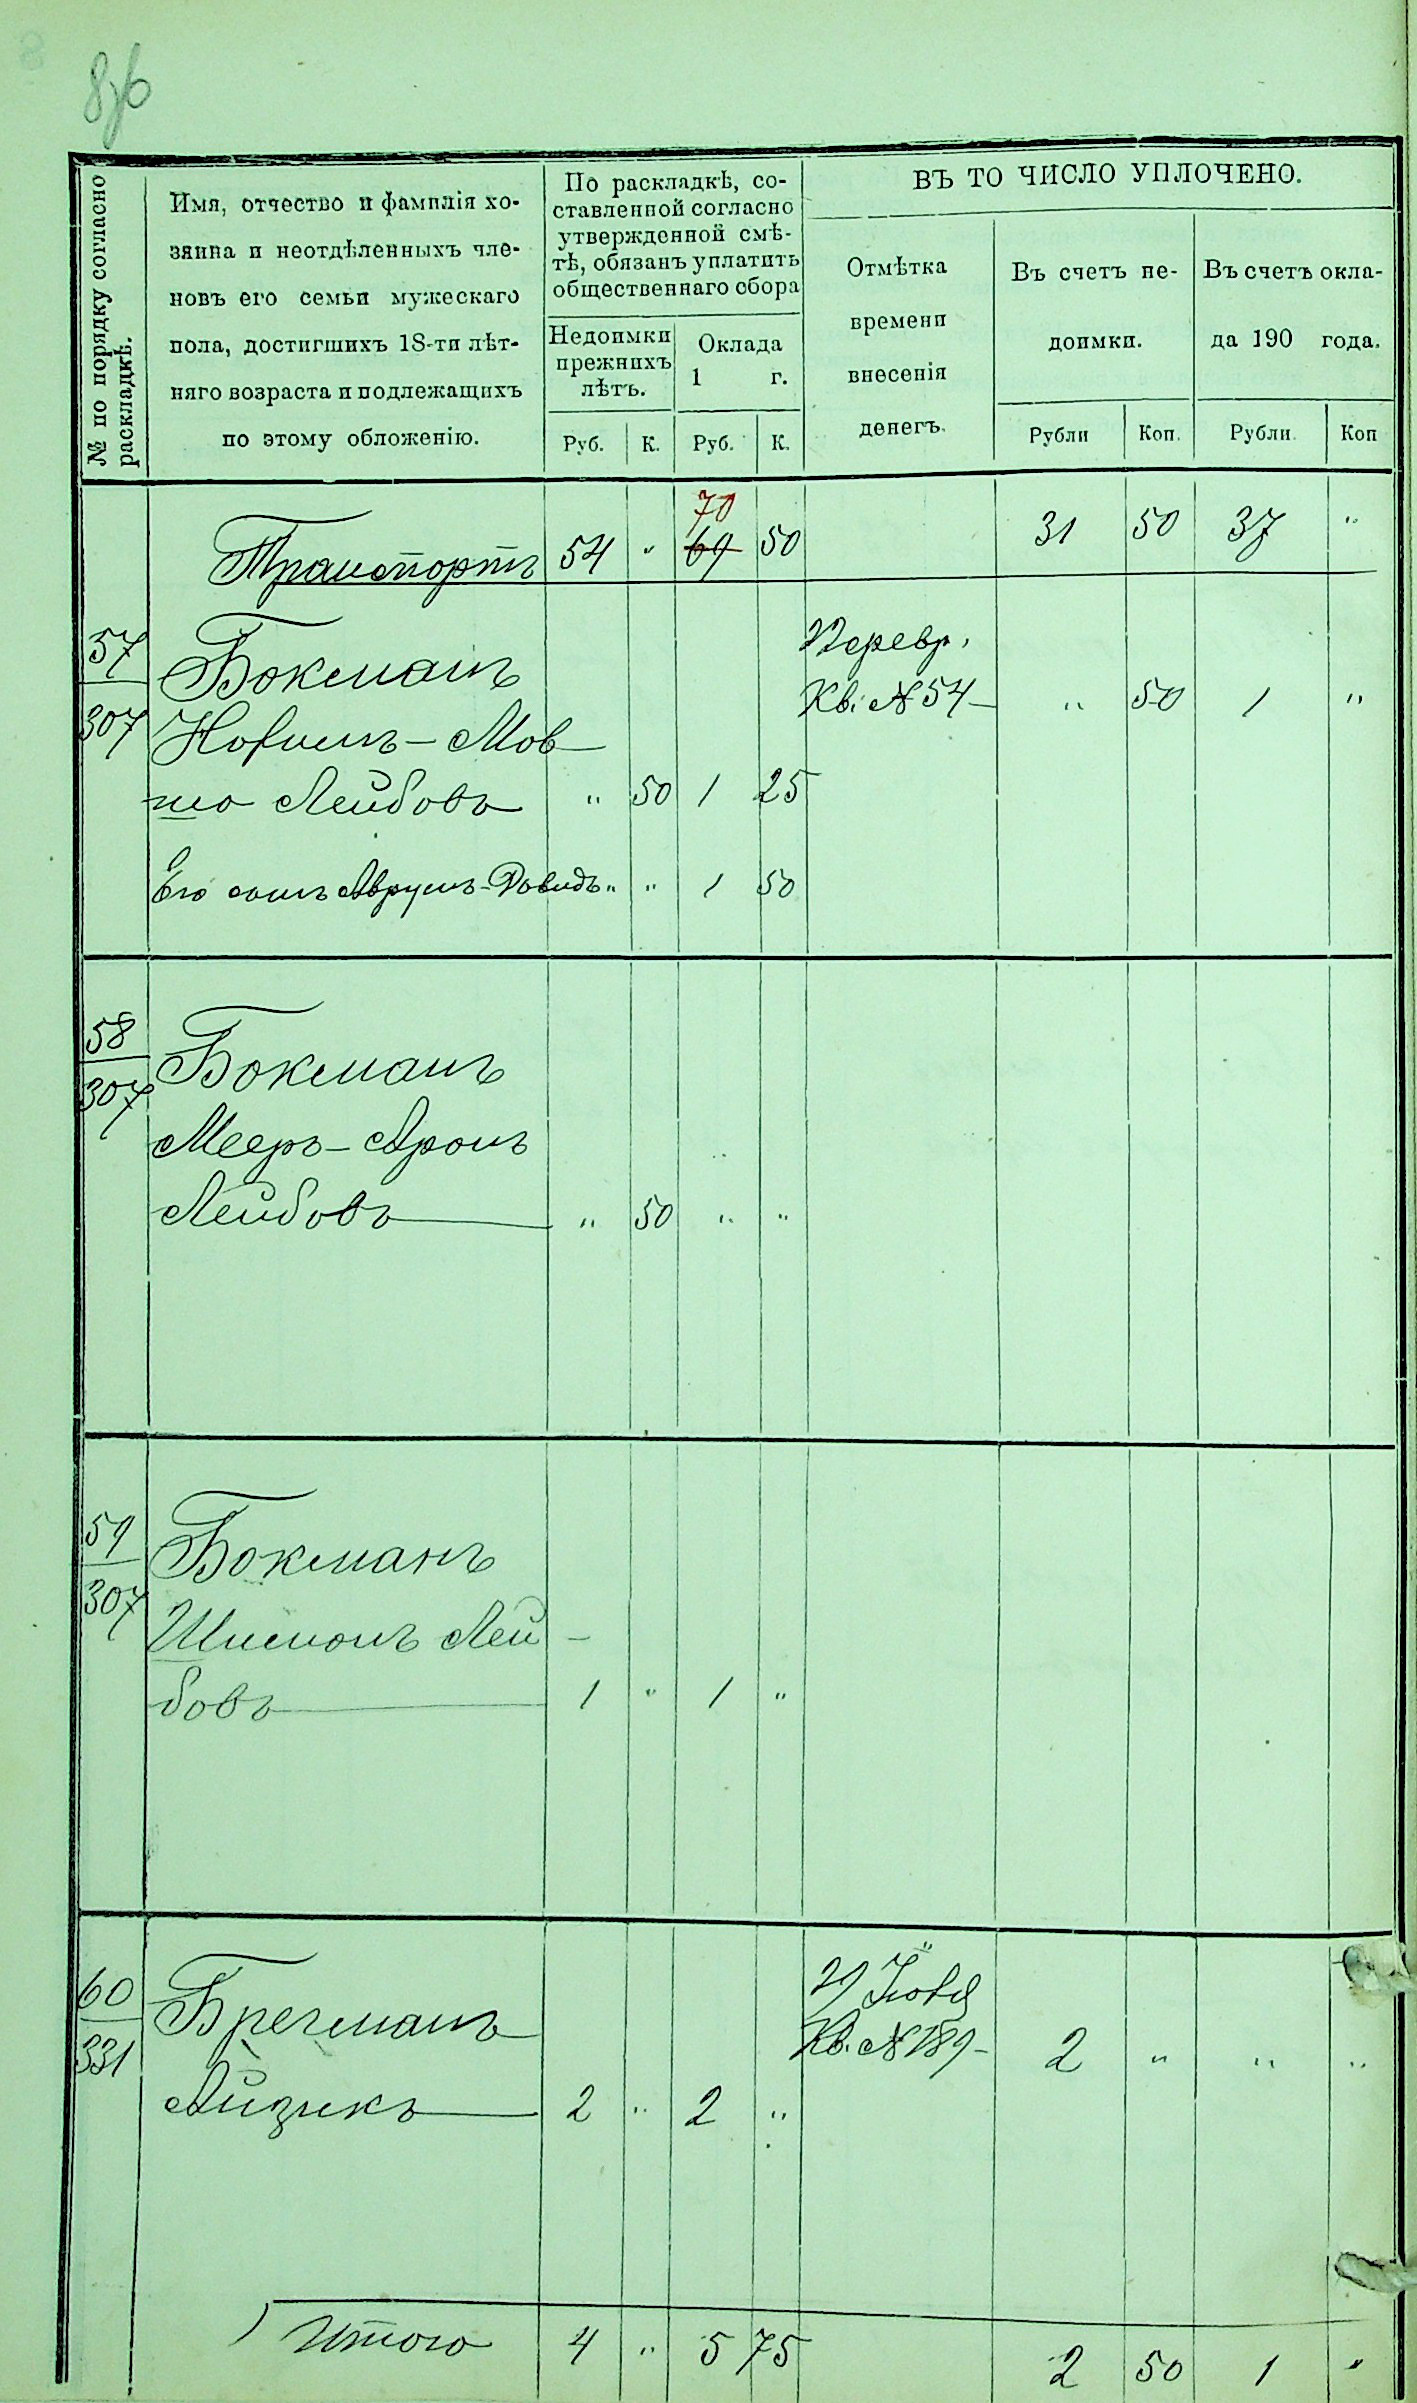 876
№ по порядку согласно
раскладкѣ.
Имя, отчество и фамилія хо-
зяина и неотдѣленныхъ чле-
новъ его семьи мужескаго
пола, достигшихъ 18-ти лѣт-
няго возраста и подлежащихъ
по этому обложенію.
По раскладкѣ, со-
ставленной согласно
утвержденной смѣ-
тѣ, обязанъ уплатить
общественнаго сбора
Недоимки
прежнихъ
лѣтъ.
Оклада
1 г.
Руб. К. Руб. К.
ВЪ ТО ЧИСЛО УПЛОЧЕНО.
Отмѣтка
времени
внесенія
денегъ.
Въ счетъ не-
доимки.
Въ счетъ окла-
да 190 года.
Рубли Коп. Рубли. Коп
70
Транспортъ 54 " 69 50 31 50 37 "
57
307
Бокманъ
Нофтем-Мов-
ша Лейбовъ " 50 1 25
Перевр.
Кв. № 54 - " 50 1 "
Его сынъ Аврумъ-Довидъ " " 1 50
58
307
Бокманъ
Мееръ-Аронъ
Лейбовъ " 50 " "
59
307
Бокманъ
Шимонъ Лей-
бовъ 1 " 1 "
60
331
Брегманъ
Айзикъ 2 " 2 "
Кв. № 189 - 2 " " "
Итого 4 " 5 75 2 50 1 "